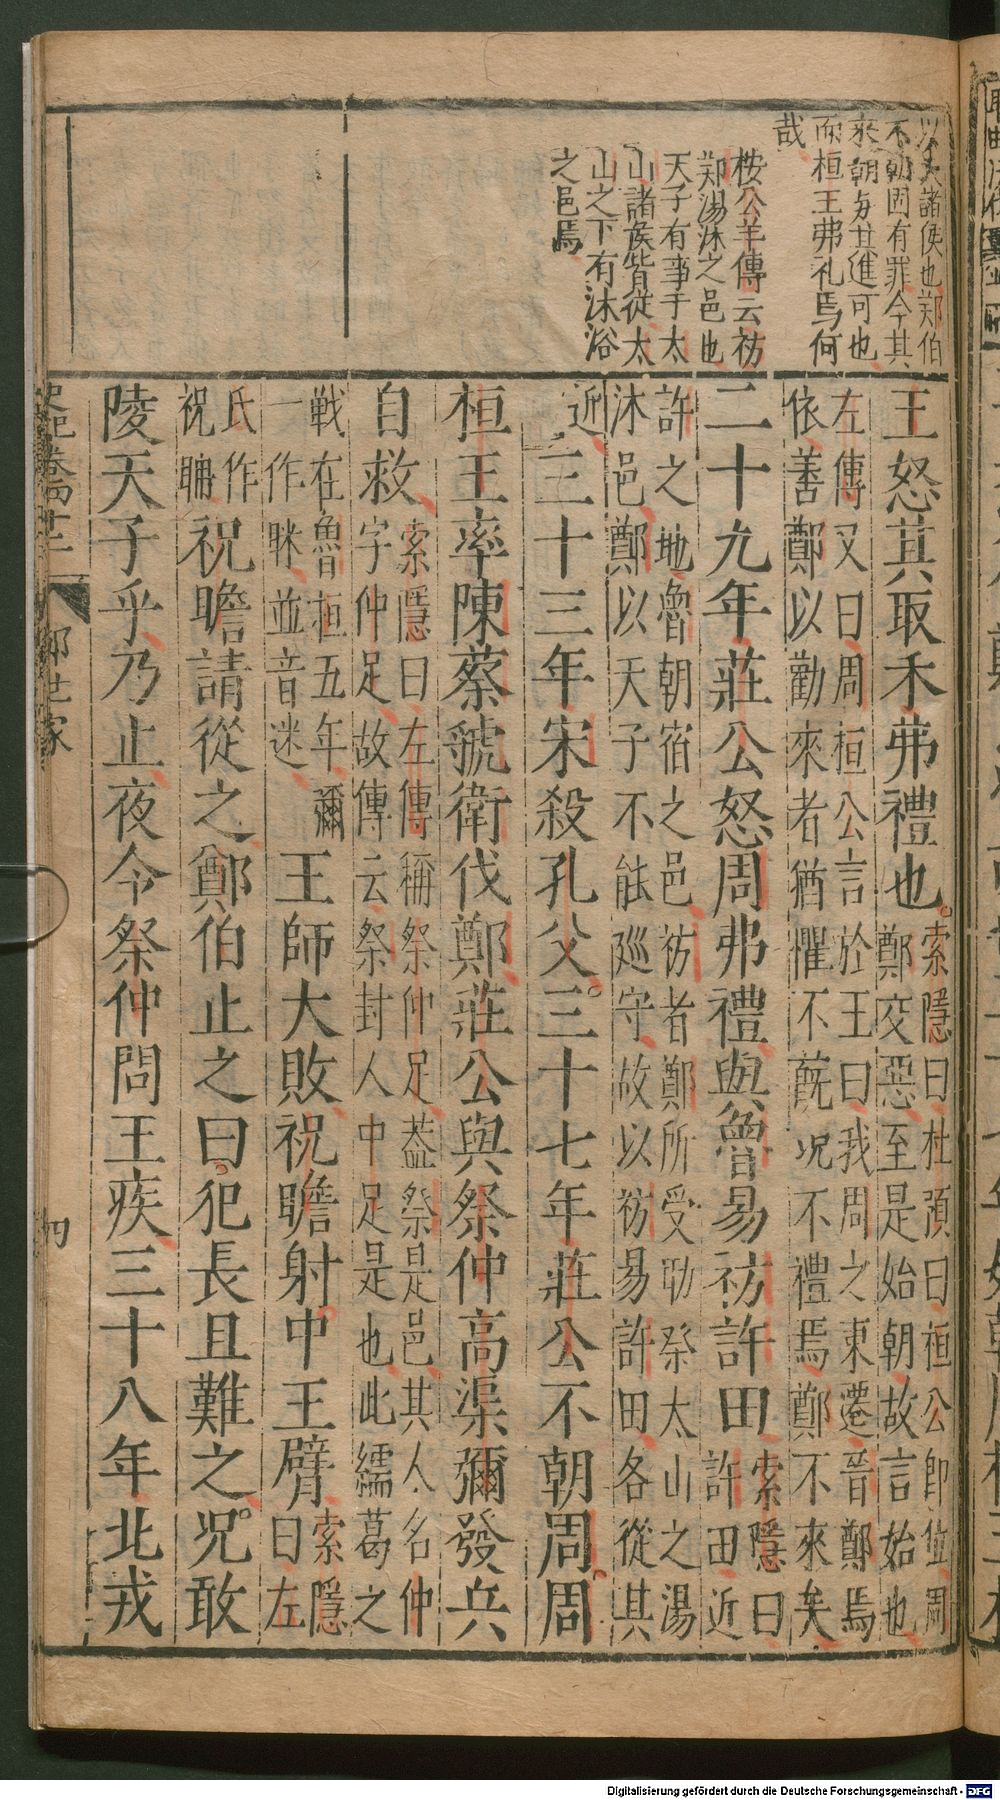 以夫諸侯也郑伯
不朝固有罪今其
來朝与其進可也
而桓王弗礼焉何
哉
按公羊傳云祊
郑湯沐之邑也
天子有事于太
山諸侯皆從太
山之下有沐浴
之邑焉
王怒其取禾弗禮也索隱曰杜預曰桓公即位周
鄭交惡至是始朝故言始也
左傳又曰周桓公言於王曰我周之東遷晉鄭焉
依善鄭以勸來者猶懼不蔇况不禮焉鄭不來矣
二十九年莊公怒周弗禮與魯易祊許田索隱曰
許田近
許之地魯朝宿之邑祊者鄭所受助祭太山之湯
沐邑鄭以天子不能廵守故以祊易許田各從其
近三十三年宋殺孔父三十七年莊公不朝周周
桓王率陳蔡虢衛伐鄭莊公與祭仲高渠彌發兵
自救索隱曰左傳稱祭仲足蓋祭是邑其人名仲
字仲足故傳云祭封人中足是也此繻葛之
戰在魯桓五年彌
一作眯並音迷王師大敗祝瞻射中王臂索隱
曰左
氏作
祝聃祝瞻請從之鄭伯止之曰犯長且難之况敢
陵天子乎乃止夜令祭仲問王疾三十八年北戎
史記卷四十二
鄭世家
四
Digitalisierung gefördert durch die Deutsche Forschungsgemeinschaft - DFG